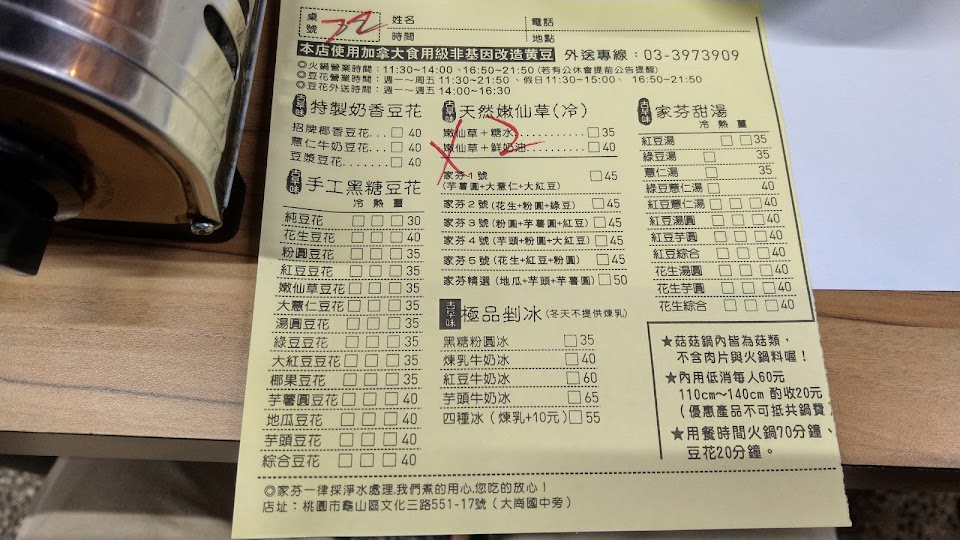 桌號 姓名 電話
時間 地點
本店使用加拿大食用級非基因改造黃豆 外送專線：03-3973909
◎火鍋營業時間：11:30~14:00、16:50~21:50 (若有公休會提前公告提醒)
◎豆花營業時間：週一~周五 11:30~21:50、假日11:30~15:00、 16:50~21:50
◎豆花外送時間：週一~週五 14:00~16:30
古早味 特製奶香豆花
招牌椰香豆花...□ 40
薏仁牛奶豆花...□ 40
豆漿豆花...□ 40
古早味 手工黑糖豆花
冷 熱 薑
純豆花 □ □ □ 30
花生豆花 □ □ □ 40
粉圓豆花 □ □ □ 35
紅豆豆花 □ □ □ 35
嫩仙草豆花 □ □ □ 35
大薏仁豆花 □ □ □ 35
湯圓豆花 □ □ □ 35
綠豆豆花 □ □ □ 35
大紅豆豆花 □ □ □ 35
椰果豆花 □ □ □ 35
芋薯圓豆花 □ □ □ 40
地瓜豆花 □ □ □ 40
芋頭豆花 □ □ □ 40
綜合豆花 □ □ □ 40
古早味 天然嫩仙草(冷)
嫩仙草+糖水...........□ 35
嫩仙草+鮮奶油........□ 40
家芬1號 □ 45
(芋薯圓+大薏仁+大紅豆)
家芬2號 (花生+粉圓+綠豆) □ 45
家芬3號 (粉圓+芋薯圓+紅豆) □ 45
家芬4號 (芋頭+粉圓+大紅豆) □ 45
家芬5號 (花生+紅豆+粉圓) □ 45
家芬精選 (地瓜+芋頭+芋薯圓) □ 50
古早味 極品剉冰 (冬天不提供煉乳)
黑糖粉圓冰 □ 35
煉乳牛奶冰 □ 40
紅豆牛奶冰 □ 60
芋頭牛奶冰 □ 65
四種冰 (煉乳+10元) □ 55
古早味 家芬甜湯
冷 熱 薑
紅豆湯 □ □ 35
綠豆湯 □ 35
薏仁湯 □ 35
綠豆薏仁湯 □ 40
紅豆薏仁湯 □ □ □ 40
紅豆湯圓 □ □ □ 40
紅豆芋圓 □ □ □ 40
紅豆綜合 □ □ □ 40
花生湯圓 □ □ □ 40
花生芋圓 □ □ □ 40
花生綜合 □ □ □ 40
★菇菇鍋內皆為菇類，
不含肉片與火鍋料喔！
★內用低消每人60元
110cm~140cm 酌收20元
(優惠產品不可抵共鍋費
★用餐時間火鍋70分鐘、
豆花20分鐘。
◎家芬一律採淨水處理,我們煮的用心,您吃的放心！
店址：桃園市龜山區文化三路551-17號（大崗國中旁）
X 2